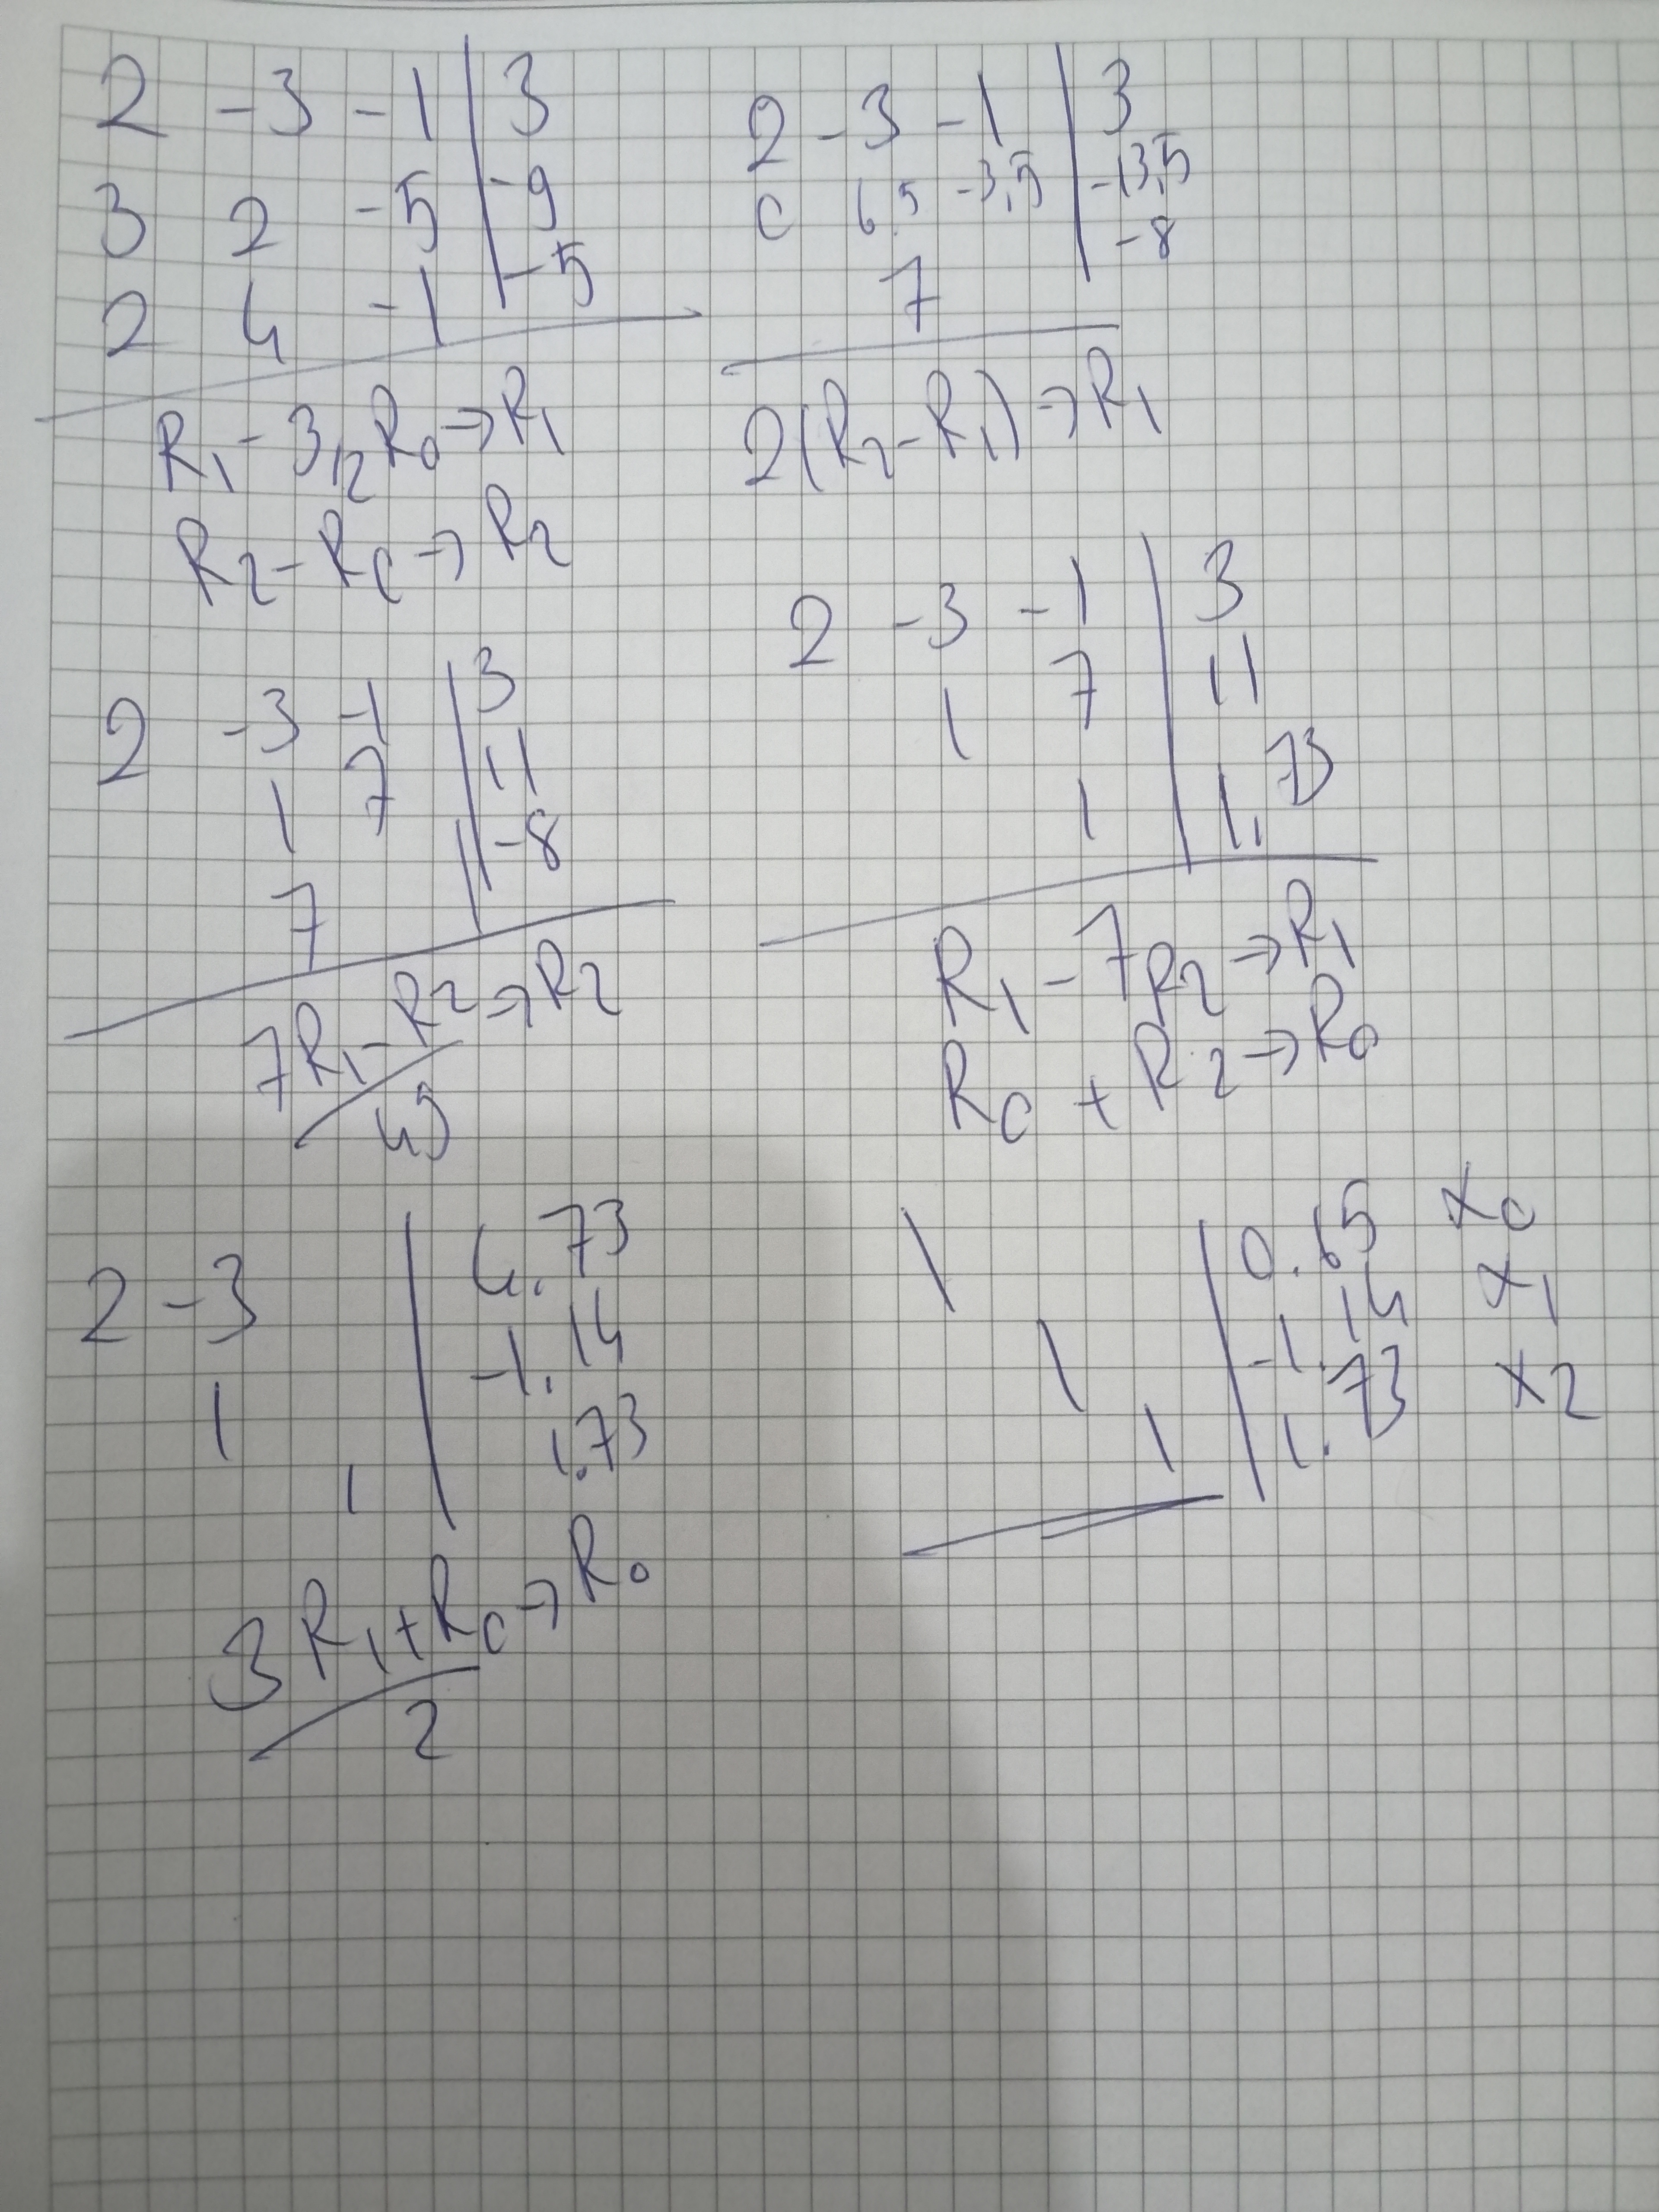 2 -3 -1 | 3
3 2 -5 | -9
2 4 -1 | -5
R1 - 3/2 R0 → R1
R2 - R0 → R2
2 -3 -1 | 3
0 6.5 -3,5 | -13,5
7 | -8
2(R2-R1) → R1
2 -3 -1 | 3
1 7 | 11
7 | -8
7R1-R2 → R2
49
2 -3 -1 | 3
1 7 | 11
1 | 1.73
R1 - 7R2 → R1
R0 + R2 → R0
2 -3 | 4.73
1 | -1.14
1 | 1.73
3R1+R0 → R0
2
1 | 0.65 x0
1 | -1.14 x1
1 | 1.73 x2